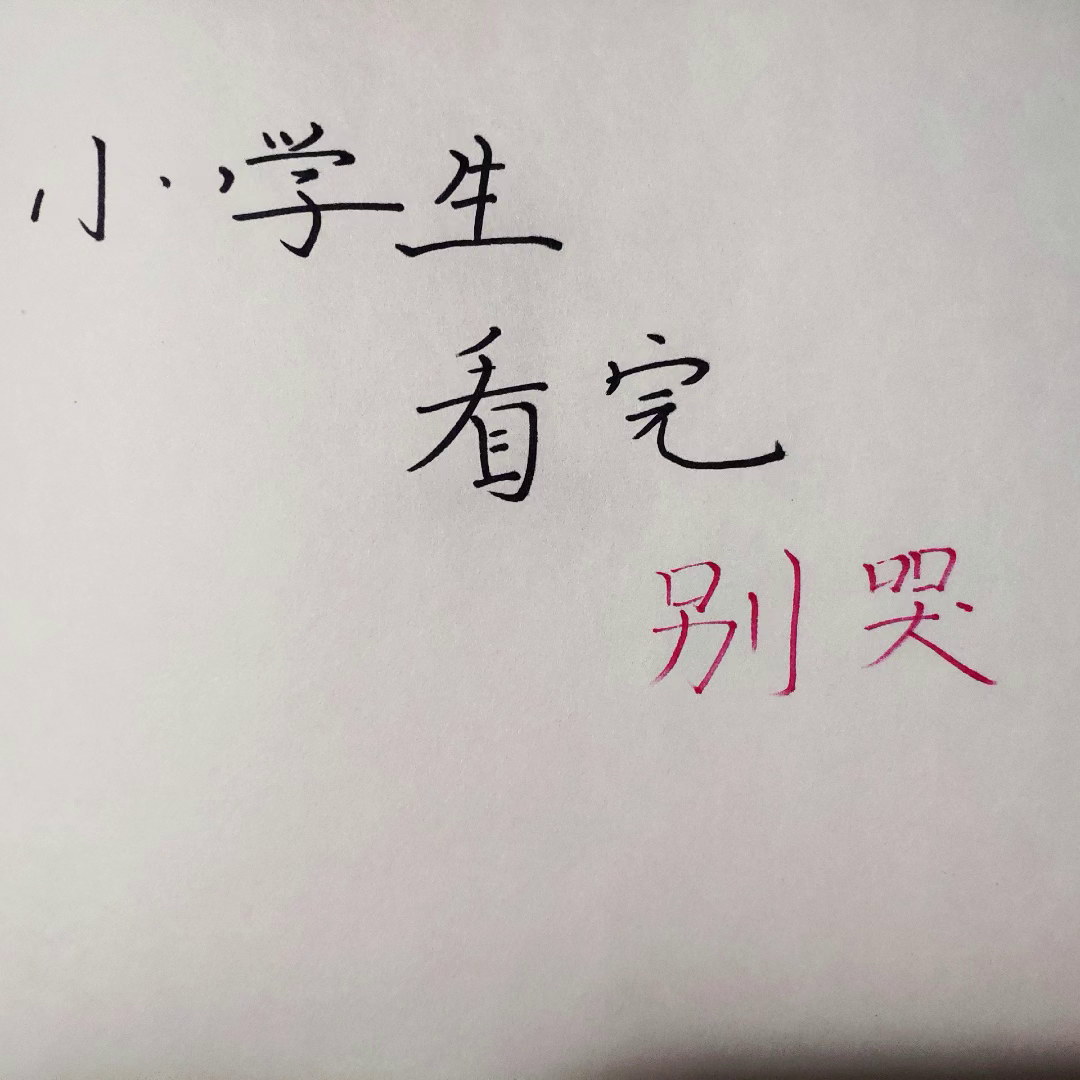 小学生
看完
别哭